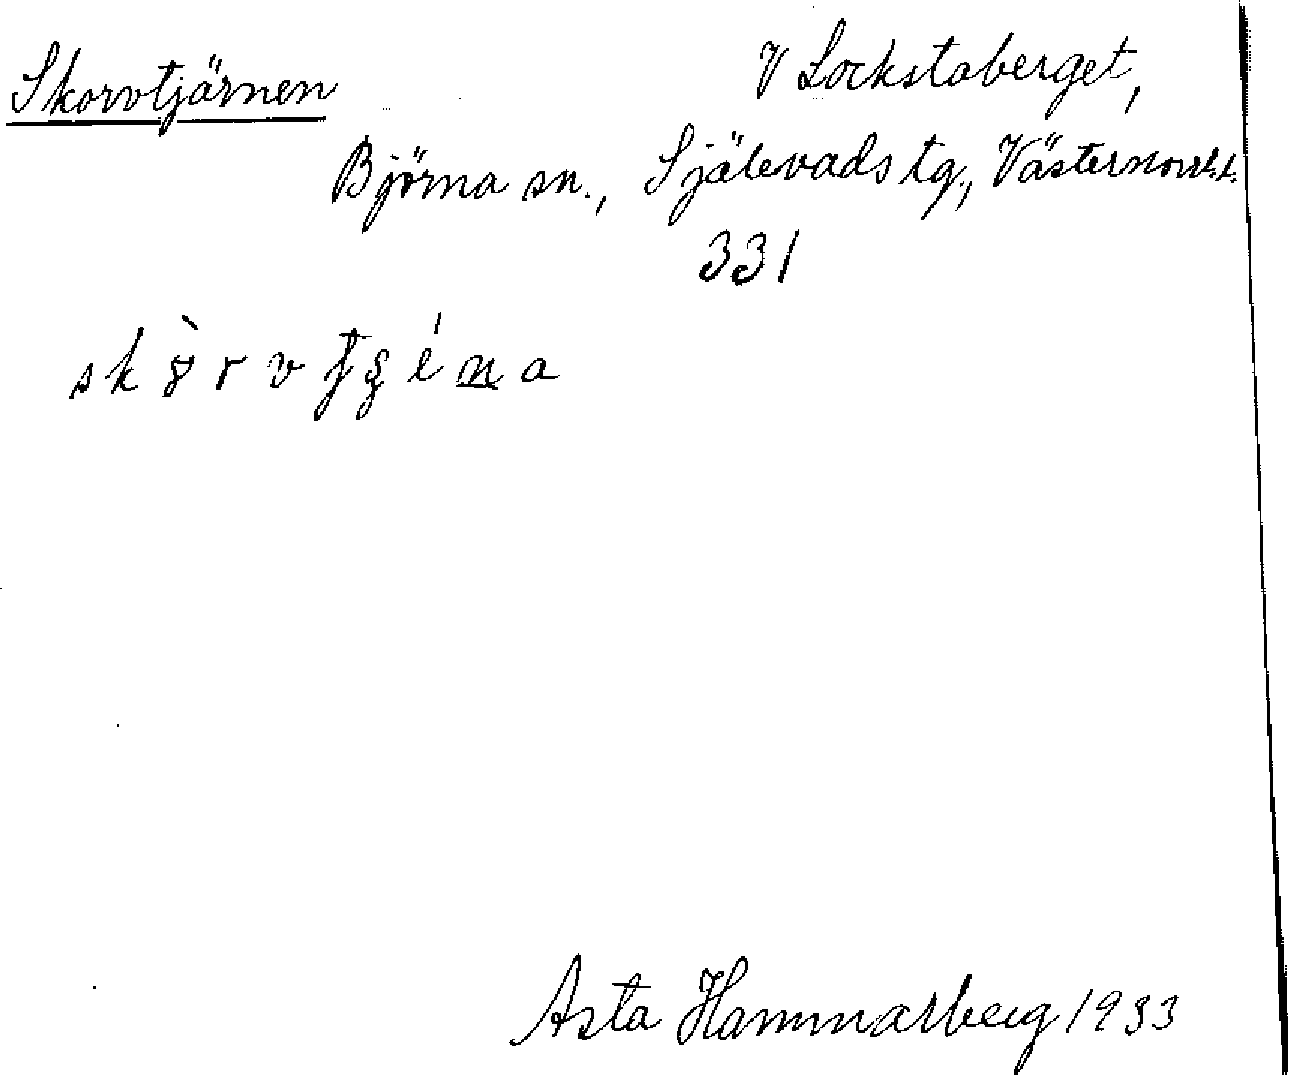 Skorvtjärnen
V Lockstaberget,
Björna sn., Själevads tg., Västernorrl. l.
331
Asta Hammarberg 1933